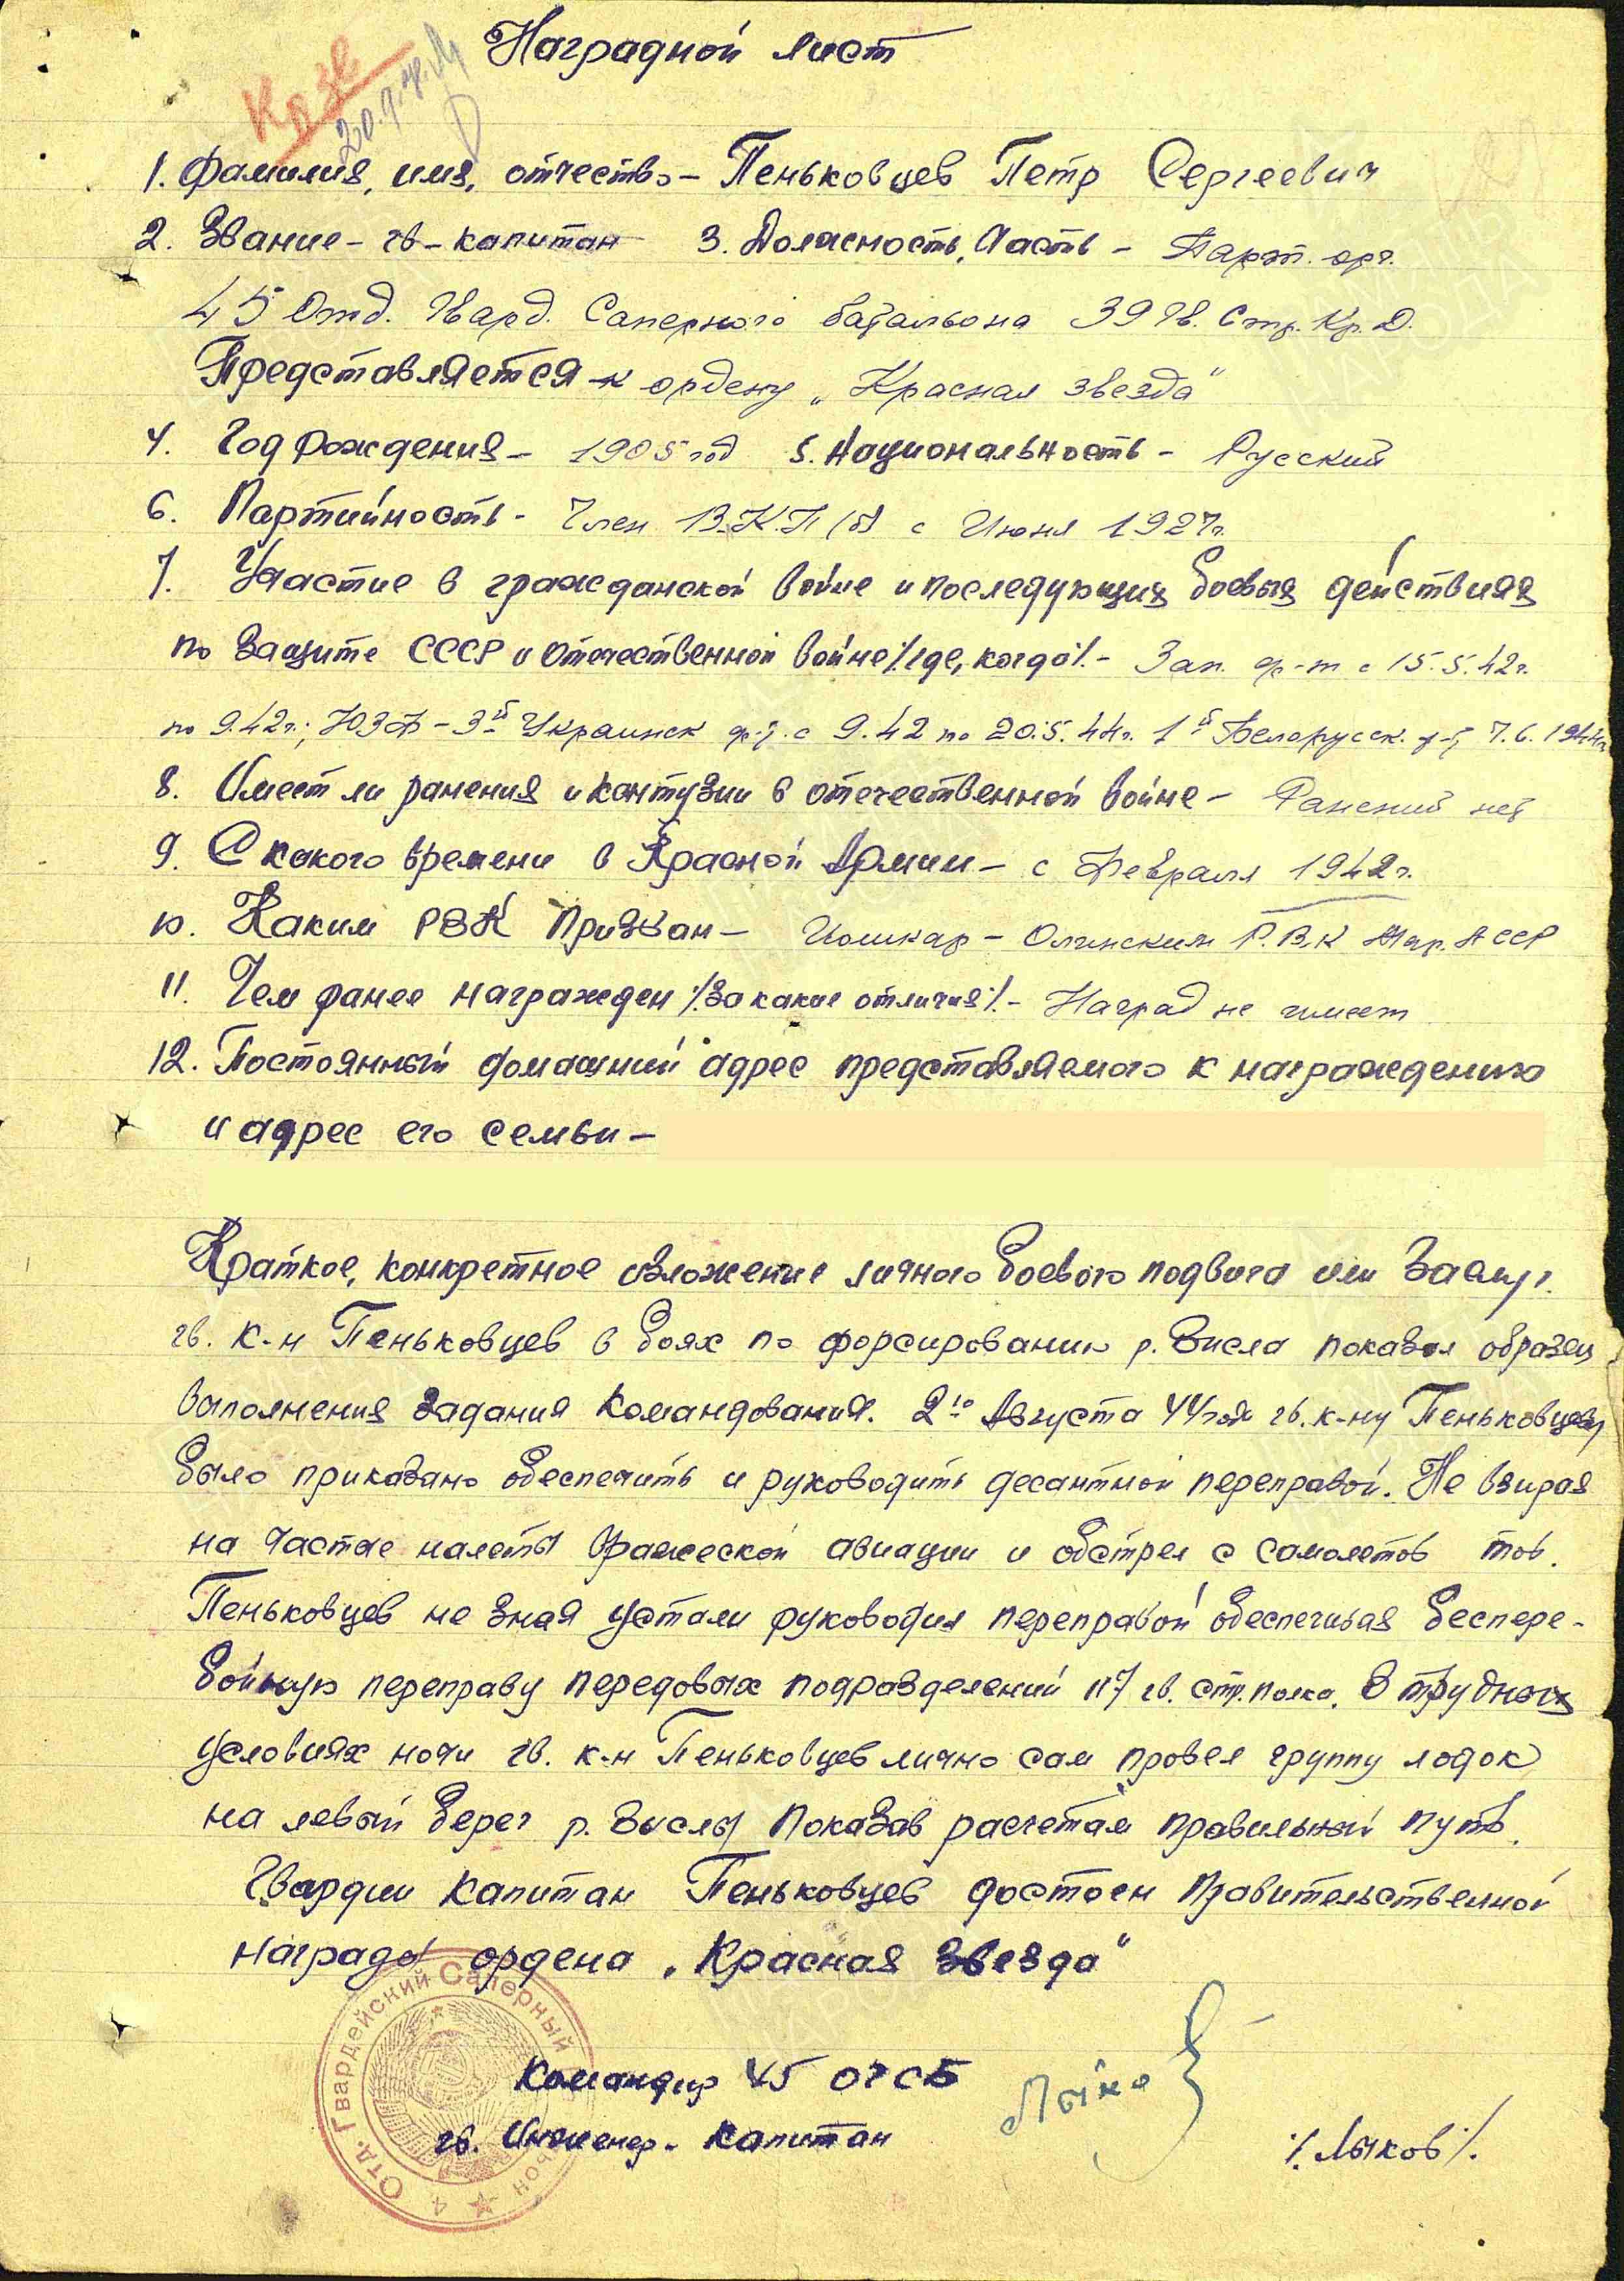 Наградной лист
Кр Зв
20.9.44
1. Фамилия, имя, отчество – Пеньковцев Петр Сергеевич
2. Звание – гв – капитан 3. Должность, часть – Парт. орг.
45 Отд. Гвард. Саперного батальона 39 Гв. Стр. Кр. Д.
Представляется – к ордену „Красная звезда"
4. Год рождения – 1905 год 5. Национальность – Русский
6. Партийность - Член В.К.П(б) с Июня 1927г.
7. Участие в гражданской войне и последующих боевых действиях
по защите СССР и отечественной войне /где, когда/ – Зап. ф-т с 15.5.42г.
по 9.42г.; ЮЗФ – 3й Украинск ф-т. с 9.42 по 20.5.44г. 1й Белорусск. ф-т, 7.6.1944г
8. Имеет ли ранения и контузии в отечественной войне – Ранений нет
9. С какого времени в Красной Армии – с Февраля 1942г.
10. Каким РВК призван – Йошкар – Олинским Р.В.К Мар. АССР
11. Чем ранее награжден /за какие отличия/ – Наград не имеет
12. Постоянный домашний адрес представляемого к награждению
и адрес его семьи –
Краткое, конкретное изложение личного боевого подвига или заслуг.
гв. к-н Пеньковцев в боях по форсированию р. Висла показал образец
выполнения задания командования. 2го Августа 44года гв. к-ну Пеньковцеву
было приказано обеспечить и руководить десантной переправой. Не взирая
на частые налеты вражеской авиации и обстрел с самолетов тов.
Пеньковцев не зная устали руководил переправой обеспечивая беспере-
бойную переправу передовых подразделений 117 гв. стр. полка. В трудных
условиях ночи гв. к-н Пеньковцев лично сам провел группу лодок
на левый берег р. Вислы показав расчетам правильный путь.
Гвардии капитан Пеньковцев достоен правительственной
награды ордена „Красная звезда"
Отд. Гвардейский Саперный
Командир 45 ОГСБ
гв. Инженер - капитан
/Лыков/.